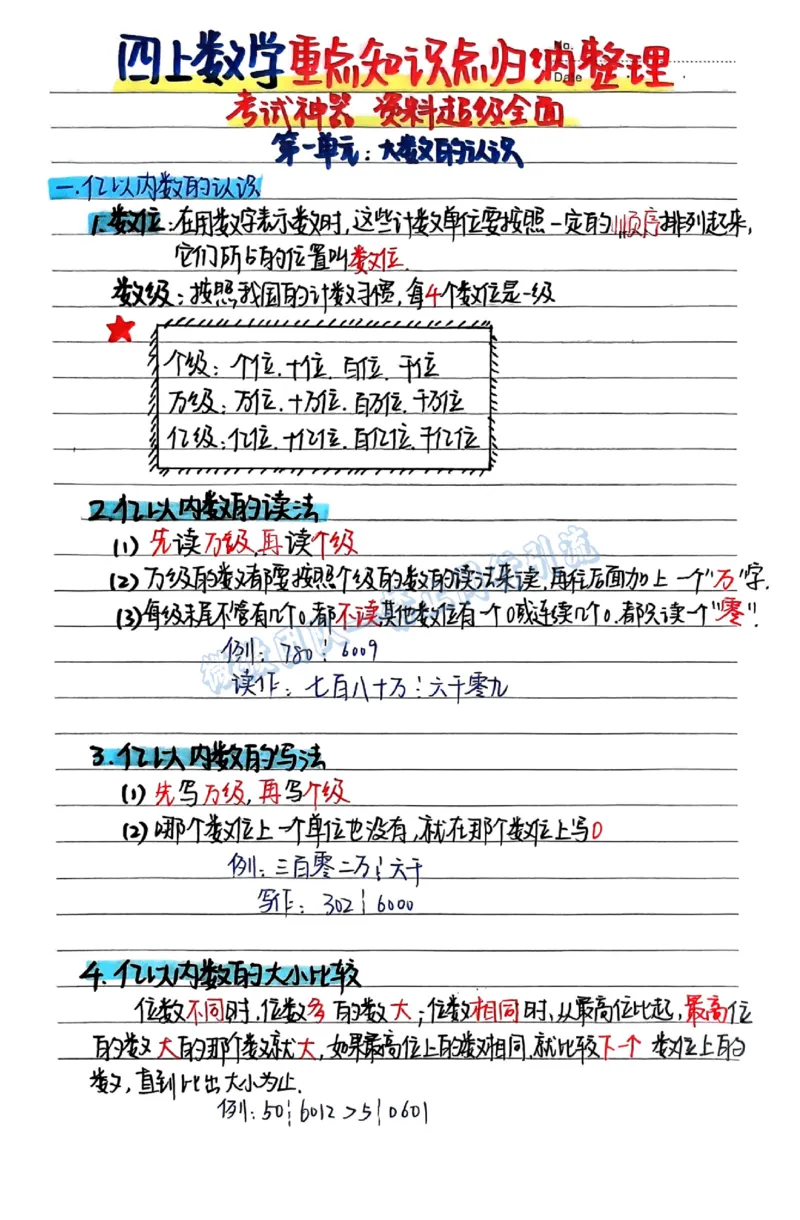 四上数学重点知识点归纳整理
No.
Date
考试神器 资料超级全面
第一单元：大数的认识
一.亿以内数的认识
1.数位：在用数字表示数时，这些计数单位要按照一定的顺序排列起来，
它们所占的位置叫数位.
数级：按照我国的计数习惯，每4个数位是一级
个级：个位.十位.百位.千位
万级：万位.十万位.百万位.千万位
亿级：亿位.十亿位.百亿位.千亿位
2.亿以内数的读法
(1) 先读万级，再读个级
(2) 万级的数都要按照个级的数的读法来读，再在后面加上一个"万"字.
(3) 每级末尾不管有几个0，都不读其他数位有一个0或连续几个0.都只读一个"零".
例：780┆6009
读作：七百八十万┆六千零九
3.亿以内数的写法
(1) 先写万级，再写个级
(2) 哪个数位上一个单位也没有，就在那个数位上写0
例：三百零二万┆六千
写作：302┆6000
4.亿以内数的大小比较
位数不同时，位数多的数大；位数相同时，从最高位比起，最高位
的数大的那个数就大，如果最高位上的数相同.就比较下一个数位上的
数，直到比出大小为止.
例：50┆6012>5┆0601